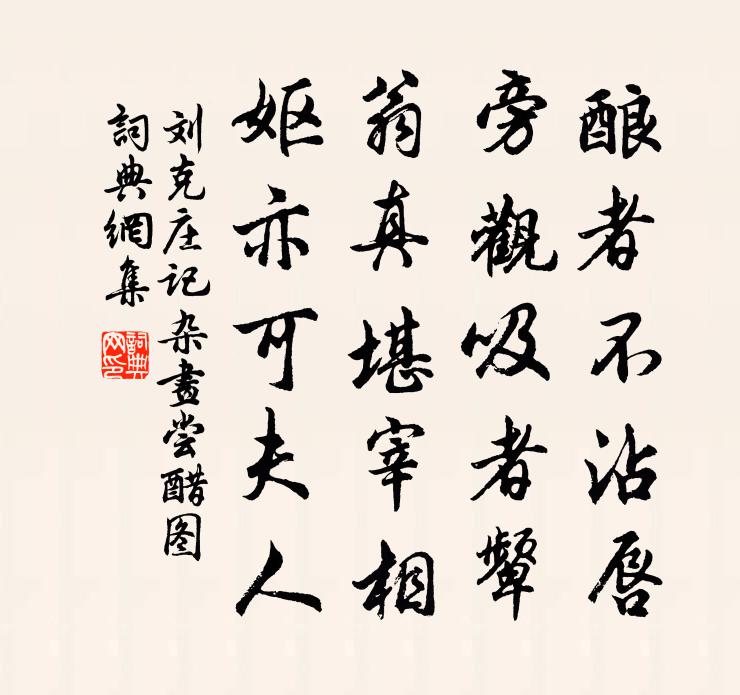 酿者不沾唇
旁觀吸者颦
翁真堪宰相
妪亦可夫人
刘克庄记杂畫尝醋图
詞典網集
詞典网印